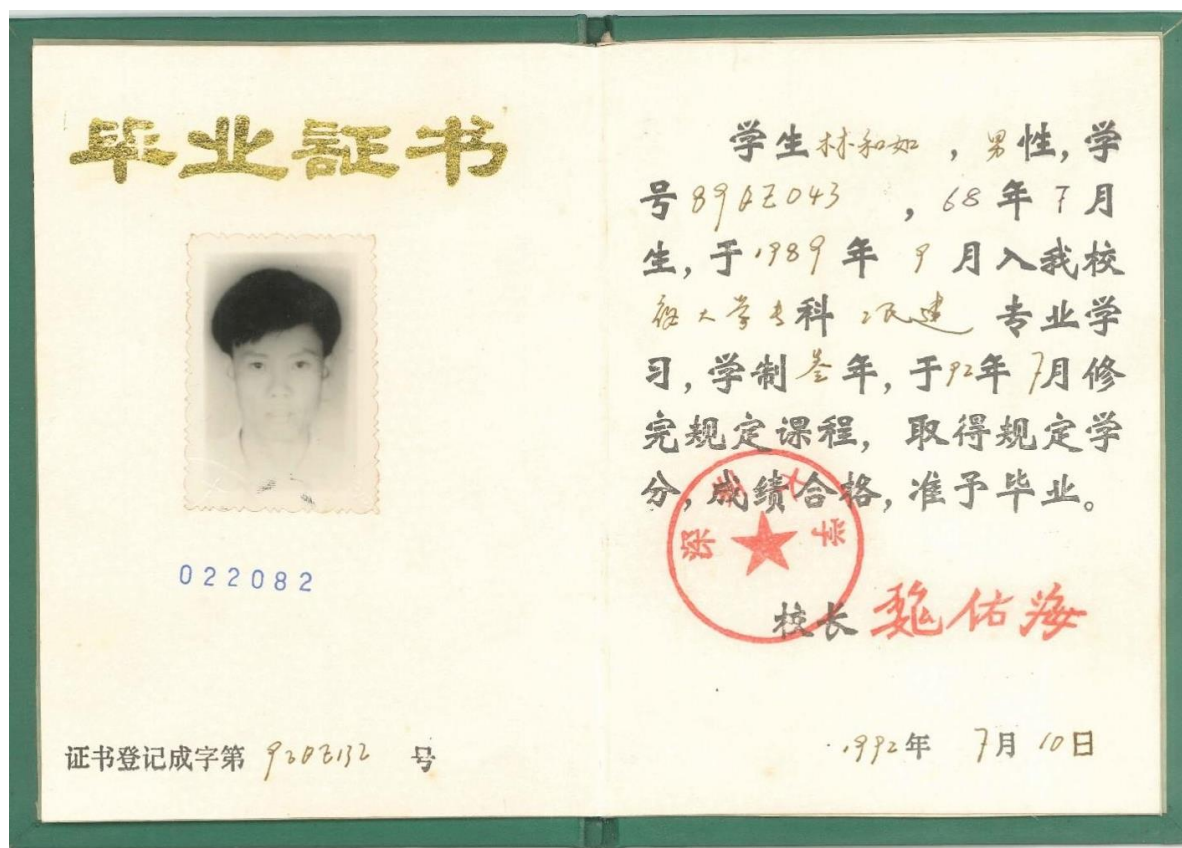 毕业証书
022082
证书登记成字第 920Z132 号
学生林和如，男性，学
号 89 Z043 ，68年7月
生，于1989年 9月入我校
夜大学专科 工民建 专业学
习，学制叁年，于92年7月修
完规定课程，取得规定学
分，成绩合格，准予毕业。
深圳大学
校长 魏佑海
1992年 7月10日